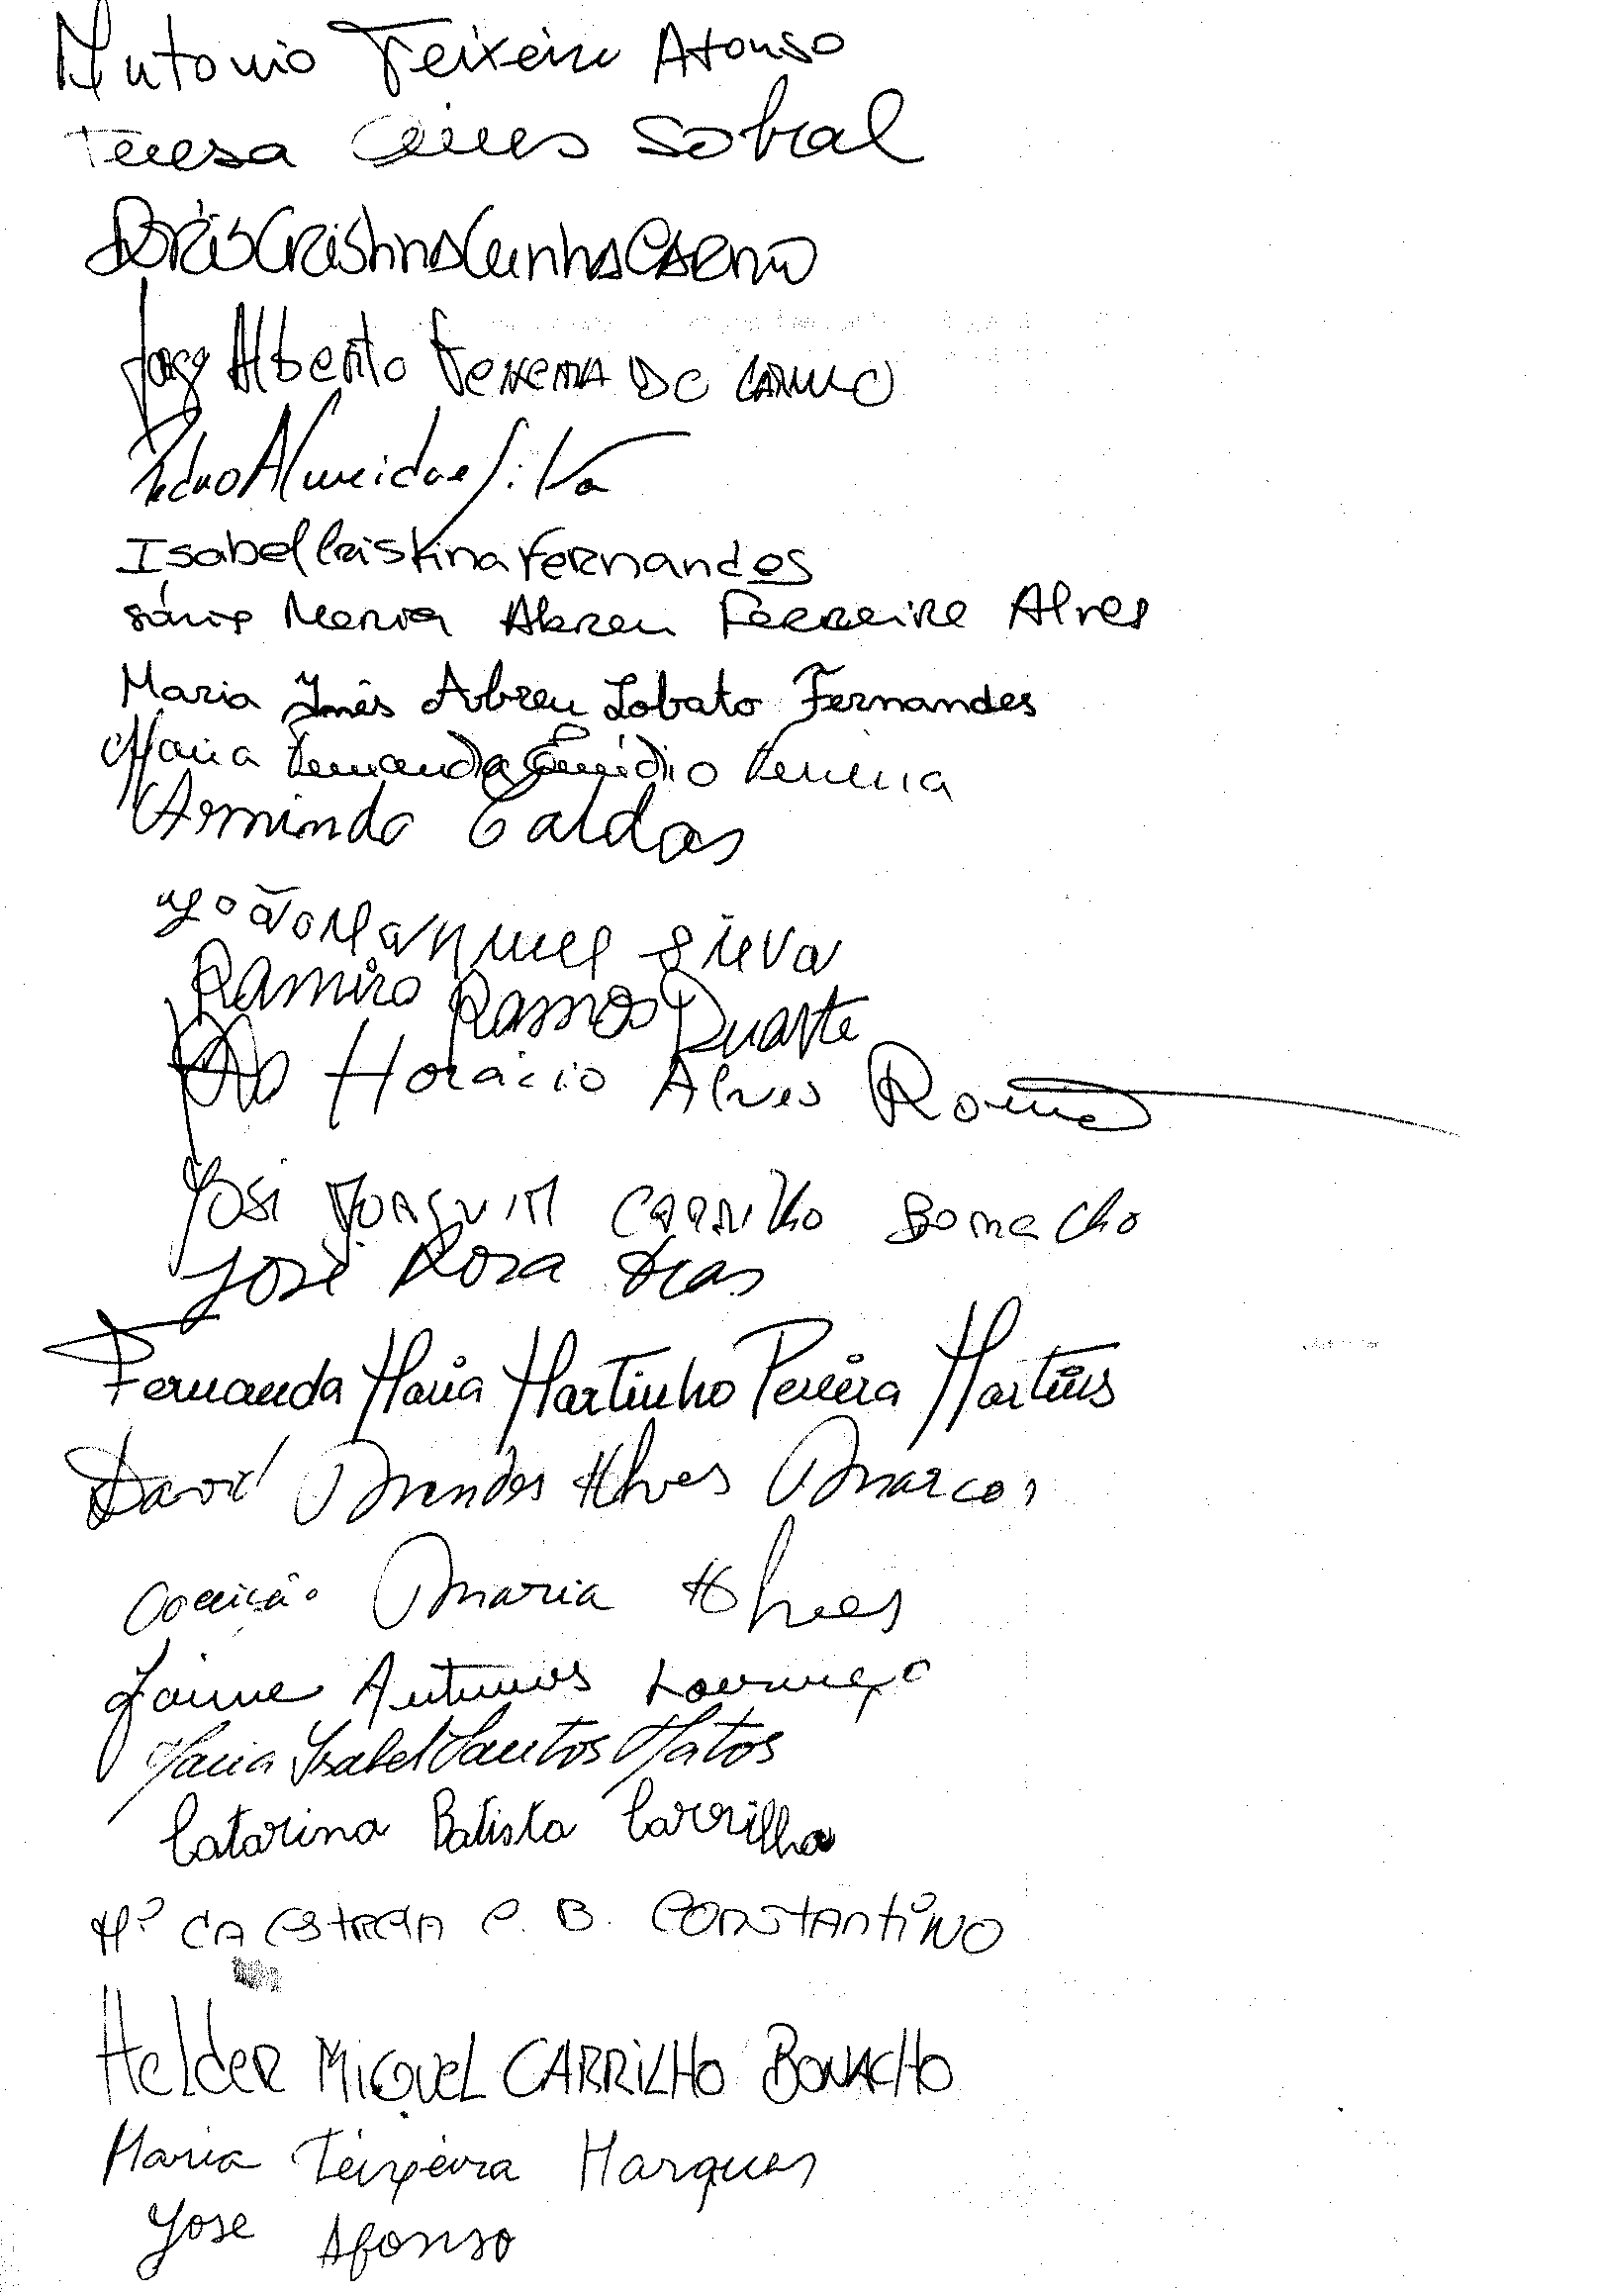 Antonio Teixeira Afonso
Teresa Sobral
Dóris Cristina Cunha Carmo
José Alberto Teixeira do Carmo
Pedro Almeida e Silva
Isabel Cristina Fernandes
Sónia Maria Abreu Ferreira Alves
Maria Inês Abreu Lobato Fernandes
Maria Fernanda Emídio Ferreira
Armindo Caldas
João Manuel Silva
Ramiro Ramos Duarte
Horácio Alves
José Joaquim Carrilho Bonacho
José Rosa Dias
Fernanda Maria Martinho Pereira Martins
David Mendes Alves Marcos
Conceição Maria Alves
Jaime Antunes Lourenço
Maria Isabel Santos Matos
Catarina Batista Carrilho
Mª da Estrela C. B. Constantino
Helder Miguel Carrilho Bonacho
Maria Teixeira Marques
Jose Afonso